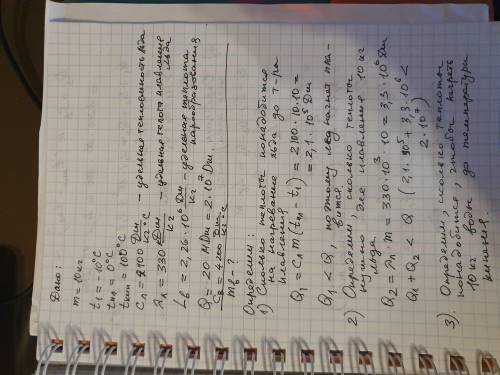 Дано:
m = 10 кг
t₁ = 10°C
tпл = 0°C
tкип = 100°C
Cл = 2100 Дж/кг·°C - удельная теплоемкость льда
λл = 330 кДж/кг - удельная теплота плавления льда
Lв = 2,26·10⁶ Дж/кг - удельная теплота парообразования
Q = 20 МДж = 2·10⁷ Дж
Cв = 4200 Дж/кг·°C
mв - ?
Определим:
1) Сколько теплоты понадобится
на нагревание льда до т-ры
плавления
Q₁ = Cл m (tпл - t₁) = 2100·10·10 =
= 2,1·10⁵ Дж
Q₁ < Q, поэтому лед начнет пла-
вится.
2) Определим, сколько теплоты
нужно для плавления 10 кг
льда
Q₂ = λл · m = 330·10³·10 = 3,3·10⁶ Дж
Q₁ + Q₂ < Q (2,1·10⁵ + 3,3·10⁶ <
2·10⁷)
3). Определим, сколько теплоты
понадобится, чтобы нагреть
10 кг воды до температуры
кипения